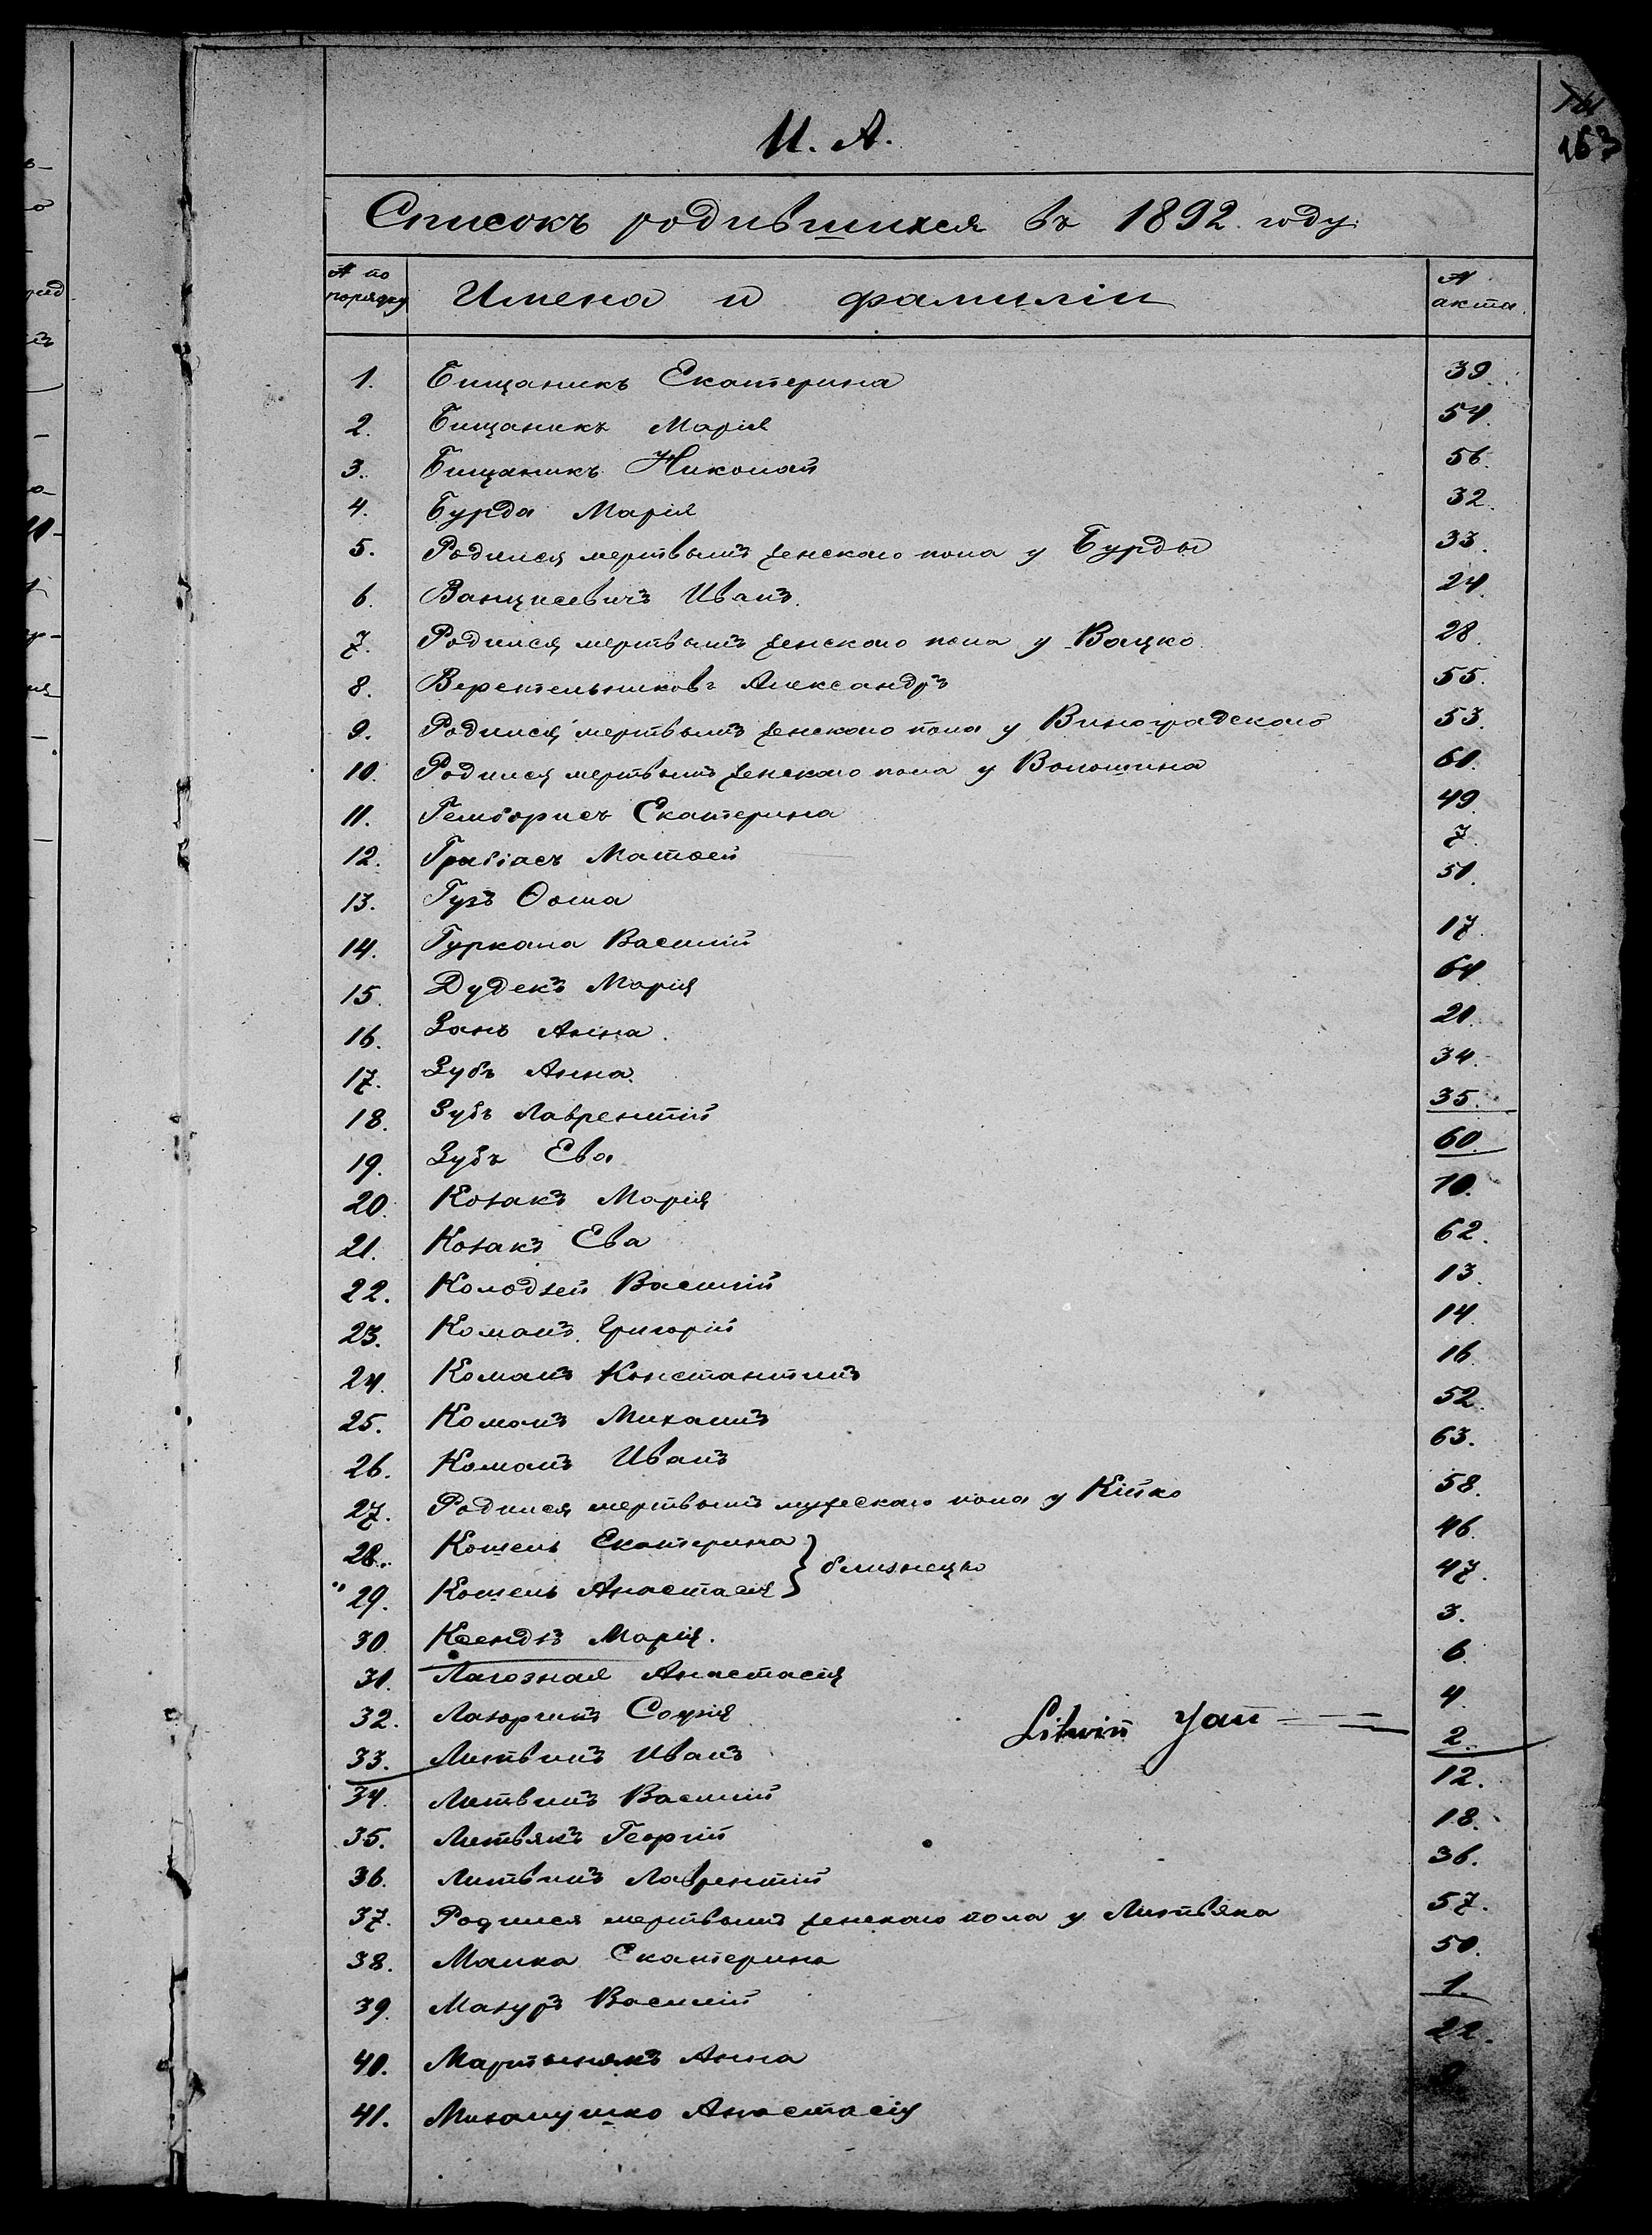 И. А.
163
Списокъ родившихся въ 1892 году
№ по порядку
Имена и фамиліи
№ акта.
1. Бищаникъ Екатерина 39.
2. Бищаникъ Марія 54.
3. Бищаникъ Николай 56.
4. Бурда Марія 32.
5. Родился мертвымъ женскаго пола у Бурды 33.
6. Ванцисевичъ Иванъ. 24.
7. Родился мертвымъ женскаго пола у Вацко 28.
8. Веретельниковъ Александръ 55.
9. Родился мертвымъ женскаго пола у Виноградскаго 53.
10. Родился мертвымъ женскаго пола у Волошина 61.
11. Екатерина 49.
12. Матѳей 7.
13. Гузъ Ѳома 51.
14. Гуркала Василій 17.
15. Дудекъ Марія 64.
16. Занъ Анна. 21.
17. Зубъ Анна. 34.
18. Зубъ Лаврентій 35.
19. Зубъ Ева 60.
20. Козакъ Марія 10.
21. Козакъ Ева 62.
22. Колодзей Василій 13.
23. Команъ Григорій 14.
24. Команъ Константинъ 16.
25. Команъ Михаилъ 52.
26. Команъ Иванъ 63.
27. Родился мертвымъ мужескаго пола у Кійко 58.
28. Кошель Екатерина 46.
близнецы
29. Кошель Анастасія 47.
30. Ксендзъ Марія. 3.
31. Лагозная Анастасія 6.
32. Лазоринъ Софія 4.
Litwin Jan
33. Литвинъ Иванъ 2.
34. Литвинъ Василій 12.
35. Литвякъ Георгій 18.
36. Литвинъ Лаврентій 36.
37. Родился мертвымъ женскаго пола у Литвяка 57.
38. Малка Екатерина 50.
39. Мазуръ Василій 1.
40. Мартынякъ Анна 22.
41. Михалушко Анастасія